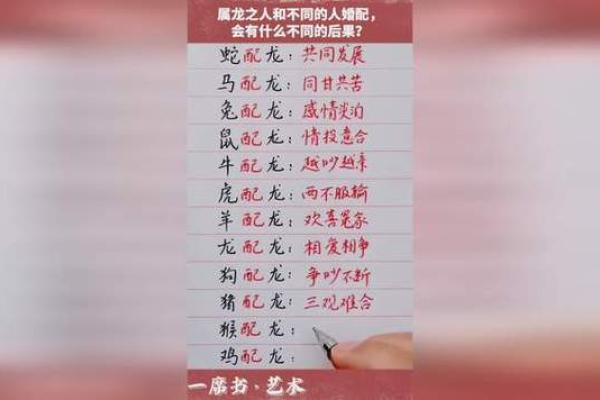 属龙之人和不同的人婚配，
会有什么不同的后果？
蛇配龙：共同发展
马配龙：同甘共苦
兔配龙：感情淡泊
鼠配龙：情投意合
牛配龙：越吵越亲
虎配龙：两不服输
羊配龙：欢喜冤家
龙配龙：相爱相争
狗配龙：争吵不断
猪配龙：三观难合
猴配龙：
鸡配龙：
一席书·艺术